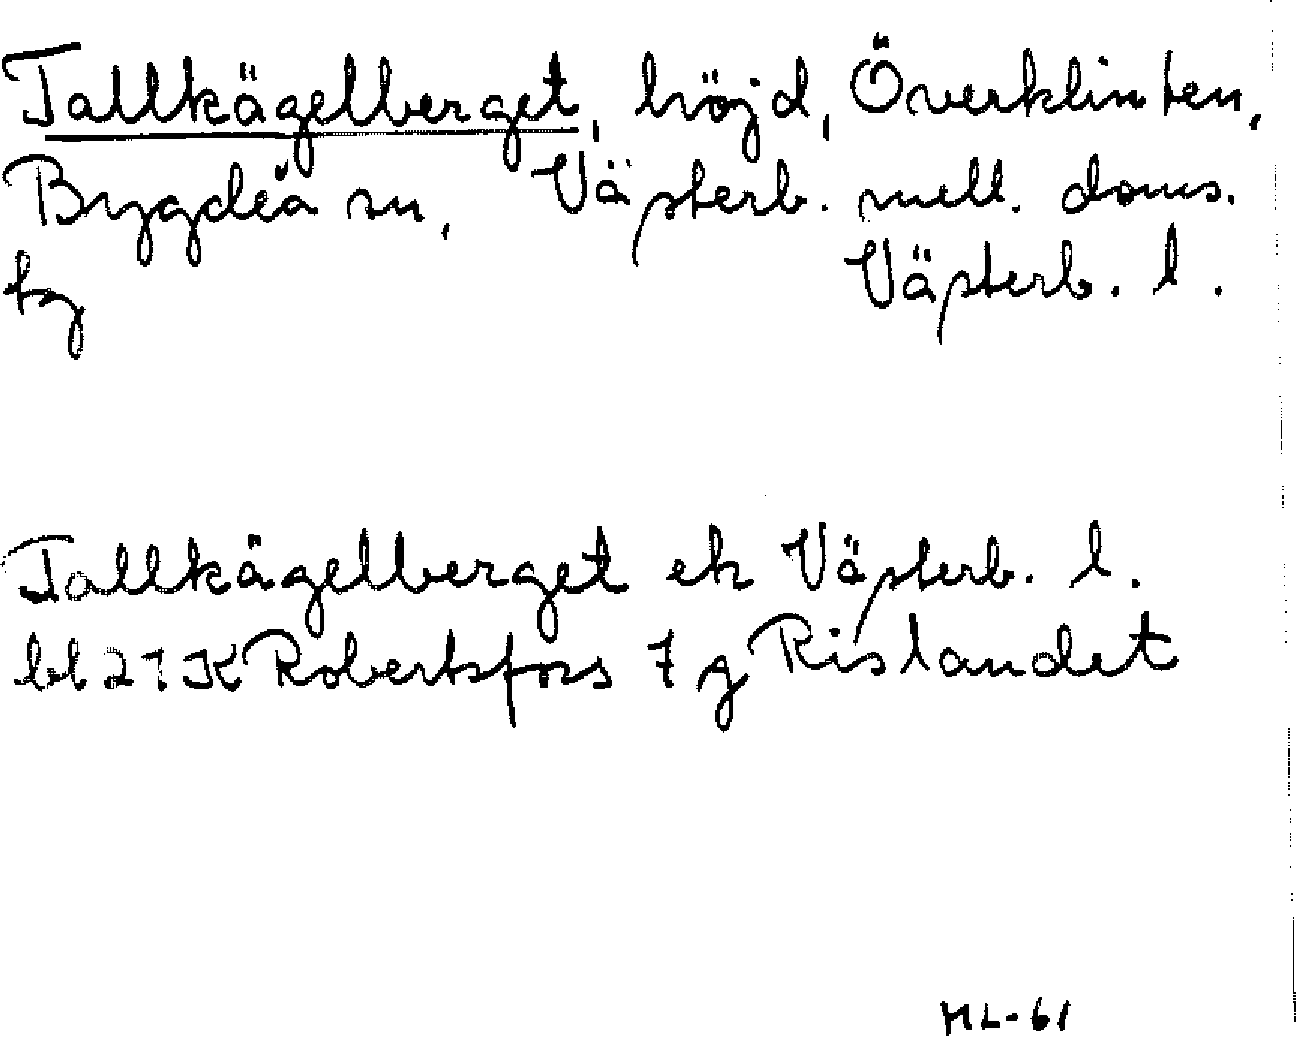 Tallkägelberget, höjd, Överklinten,
Bygdeå sn, Västerb. mell. doms.
tg Västerb. l.
Tallkägelberget ek Västerb. l.
bl 21K Robertsfors 7 g Rislandet
ML-61